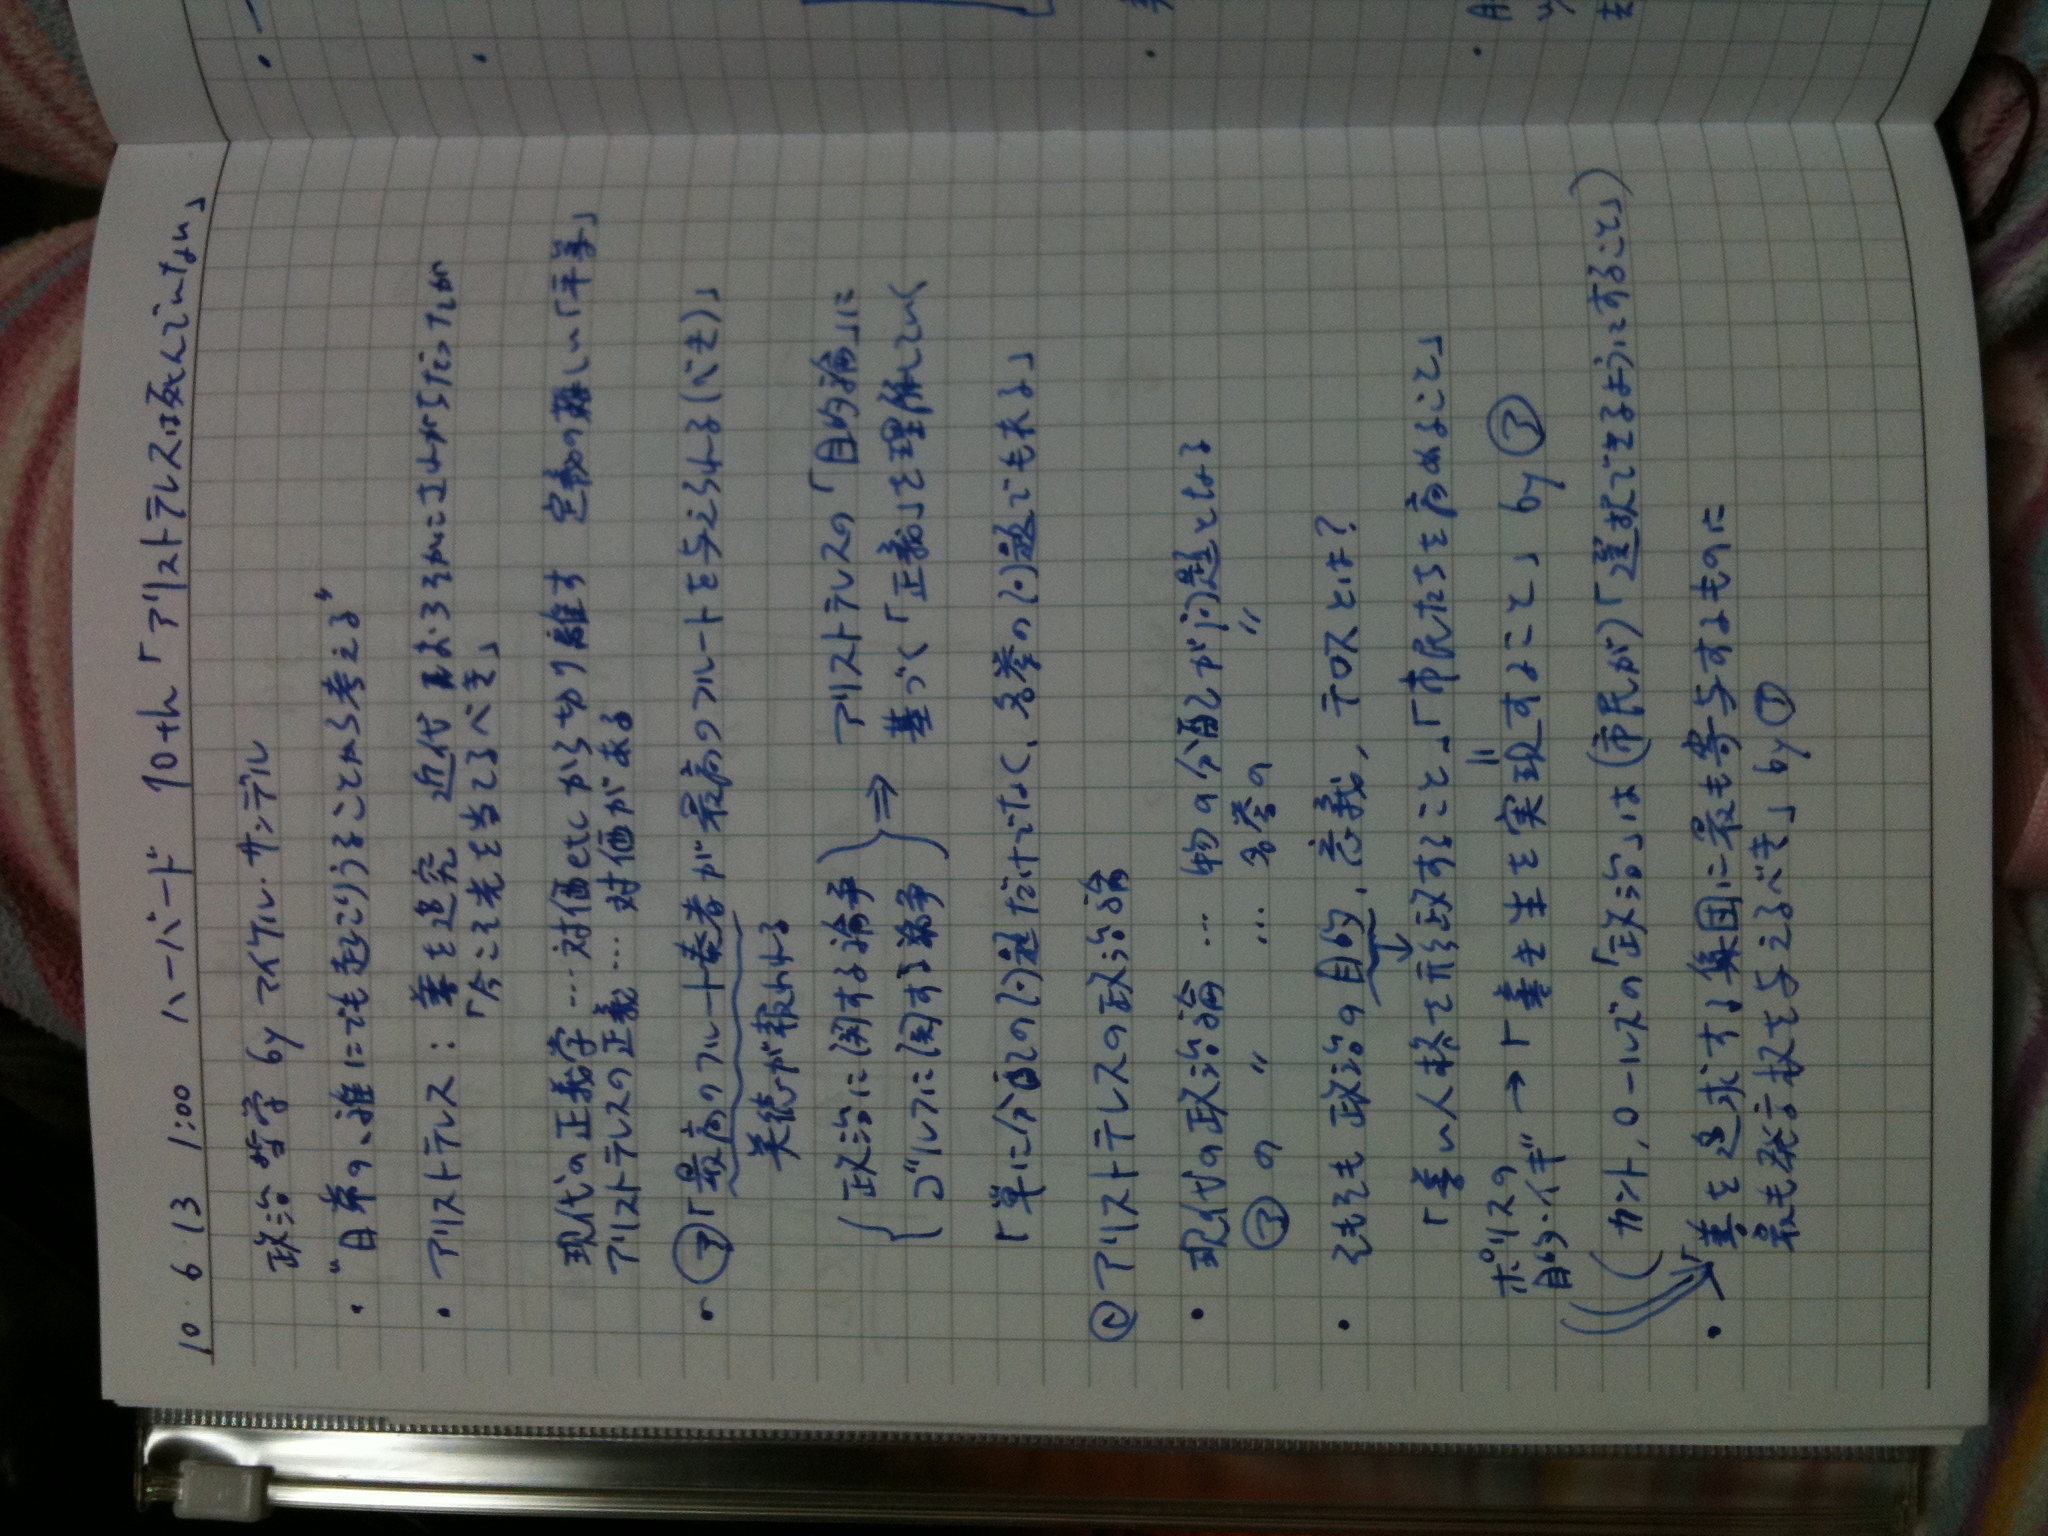 10・6・13 1:00 ハーバード 10th「アリストテレスは死んでいない」
政治哲学 by マイケル・サンデル
"日常の、誰にでも起こりうることから考える"
・アリストテレス：善を追究 近代 おろそかにされがちだったが
「今こそ光を当てるべき」
現代の正義学…対価etcから切り離す 定義の難しい「平等」
アリストテレスの正義…対価がある
・ア「最高のフルート奏者が最高のフルートを与えられる(べき)」
美徳が報われる
政治に関する論争
ゴルフに関する論争
⇒ アリストテレスの「目的論」に
基づく「正義」を理解していく
「単に分配の問題だけでなく、名誉の問題でもある」
アリストテレスの政治論
・現代の政治論 … 物の分配が問題となる
アの 〃 … 名誉の 〃
・そもそも政治の目的、意義、テロスとは?
「善い人格を形成すること」「市民たちを高めること」
ポリスの
目的・イギ → 「善き生を実現すること」 by ア
(カント,ロールズの「政治」は(市民が)「選択できるようにすること」)
・「善を追求する集団に最も寄与するものに
最も発言権を与えるべき」 by ア